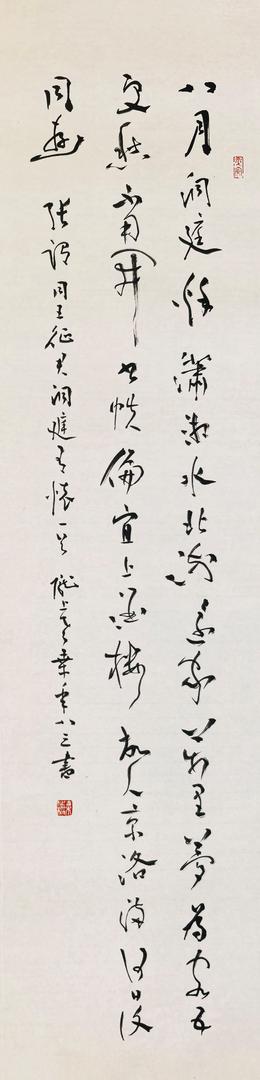 八月洞庭秋瀟湘水北流還家萬里夢為客五
更愁不用開書帙偏宜上酒樓故人京洛滿何日復
同遊 張謂同王征君洞庭有懷一首 隴上 年八三書